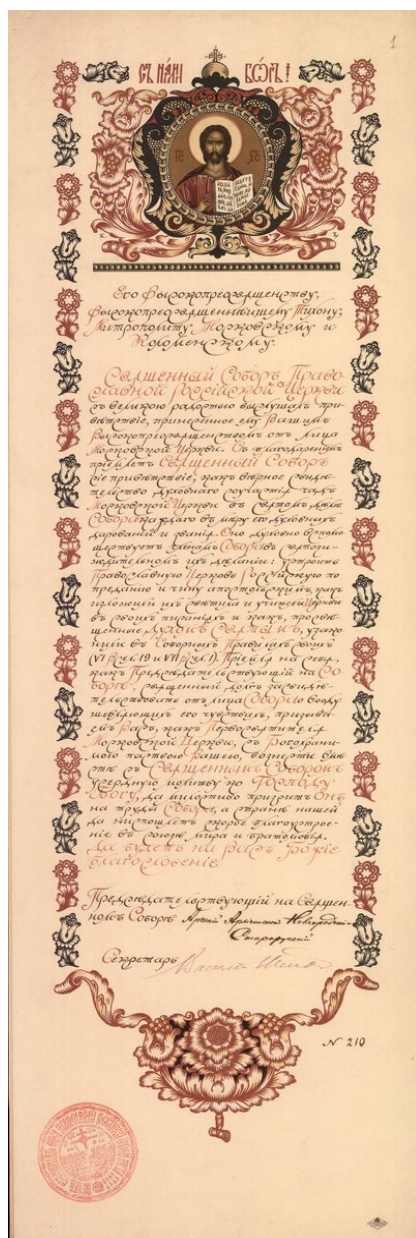 1
СЪ НАМИ БОГЪ!
Его Высокопреосвященству,
Высокопреосвященнѣйшему Тихону,
Митрополиту Московскому и
Коломенскому.
Священный Соборъ Право-
славной Россійской Церкви
съ великою радостью выслушалъ при-
вѣтствіе, принесенное ему Вашимъ
Высокопреосвященствомъ отъ лица
Московской Церкви. Съ благодареніемъ
пріемлетъ Священный Соборъ
сіе привѣтствіе, какъ вѣрное свидѣ-
тельство духовнаго соучастія чадъ
Московской Церкви въ святомъ дѣлѣ
Собора каждаго въ мѣру его духовныхъ
дарованій и званія. Оно духовно
членамъ Собора въ
ихъ дѣланіи: устроить
Православную Церковь Россійскую по
преданію и чину апостольскимъ, какъ
изложили ихъ святіи и учители Церкви
въ своихъ писаніяхъ и какъ, просвѣ-
щенные Духомъ Святымъ, узако-
нили въ Соборныхъ Правилахъ
Пріемля на себя,
какъ Предсѣдательствующій на Со-
борѣ, священный долгъ засвидѣ-
тельствовать отъ лица Собора
его чувствахъ, призыва-
емъ Васъ, какъ Первосвятителя
Московской Церкви, съ Богохрани-
мою паствою Вашею, вознести вмѣ-
стѣ съ Священнымъ Соборомъ
усердную молитву ко Господу
Богу, да милостиво призритъ Онъ
на труды Собора, а странѣ нашей
да ниспошлетъ скорое благоустрое-
ніе въ союзѣ мира и братолюбія.
Да будетъ на Васъ Божіе
благословеніе.
Предсѣдательствующій на Священ-
номъ Соборѣ Арсеній Архіепископъ Новгородскій
Старорусскій
Секретарь Василій
N 210